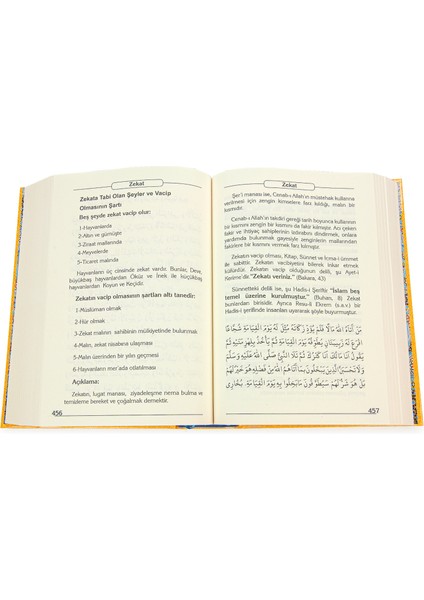 Zekat
Zekata Tabi Olan Şeyler ve Vacip
Olmasının Şartı
Beş şeyde zekat vacip olur:
1-Hayvanlarda
2-Altın ve gümüşte
3-Ziraat mallarında
4-Meyvelerde
5-Ticaret malında
Hayvanların üç cinsinde zekat vardır. Bunlar, Deve,
büyükbaş hayvanlardan Öküz ve İnek ile küçükbaş
hayvanlardan Koyun ve Keçidir.
Zekatın vacip olmasının şartları altı tanedir:
1-Müslüman olmak
2-Hür olmak
3-Zekat malının sahibinin mülkiyetinde bulunmalı
4-Malın, zekat nisabına ulaşması
5-Malın üzerinden bir yılın geçmesi
6-Hayvanların mer'ada otlatılması
Açıklama:
Zekatın, lugat manası, ziyadeleşme nema bulma ve
temizleme bereket ve çoğalmak demektir.
456
Zekat
Şer'i manası ise, Cenab-ı Allah'ın müstehak kullarına
verilmesi için zengin kimselere farz kıldığı, malın bir
kısmıdır.
Cenab-ı Allah'ın takdiri gereği tarih boyunca kullarının
bir kısmını zengin bir kısmını da fakir kılmıştır. Acı çeken
fakir ve ihtiyaç sahiplerinin ıstırabını dindirmek, onlara
yardımda bulunmak gayesiyle zenginlerin mallarından
fakirler için bir kısmını vermeyi farz kılmıştır.
Zekatın vacip olması, Kitap, Sünnet ve İcma-i ümmet
ile sabittir. Zekatın vacibiyetini bilerek inkar etmek
küfürdür. Zekatın vacip olduğunun delili, şu Ayet-i
Kerime'dir. "Zekatı veriniz." (Bakara, 43)
Sünnetteki delili ise, şu Hadis-i Şeriftir "İslam beş
temel üzerine kurulmuştur." (Buhari, 8) Zekat
bunlardan birisidir. Ayrıca Resu-li Ekrem (s.a.v.) bir
Hadis-i şerifinde insanları uyararak diyor ki:
مَنْ اٰتَاهُ اللهُ مَالاً فَلَمْ يُؤَدِّ زَكَاتَهُ مُثِّلَ لَهُ يَوْمَ الْقِيَامَةِ شُجَاعًا
اَقْرَعَ لَهُ زَبِيبَتَانِ يُطَوَّقُهُ يَوْمَ الْقِيَامَةِ ثُمَّ يَأْخُذُ بِلِهْزِمَتَيْهِ ثُمَّ
يَقُولُ اَنَا مَالُكَ اَنَا كَنْزُكَ ثُمَّ تَلاَ النَّبِيُّ صَلَّى اللهُ عَلَيْهِ وَسَلَّمَ
وَلاَ تَحْسَبَنَّ الَّذِينَ يَبْخَلُونَ بِمَا اٰتَاهُمُ اللهُ مِنْ فَضْلِهِ هُوَ خَيْرًا لَهُمْ
بَلْ هُوَ شَرٌّ لَهُمْ سَيُطَوَّقُونَ مَابَخِلُوا بِهِ يَوْمَ الْقِيَامَةِ. بُخَارِى
457